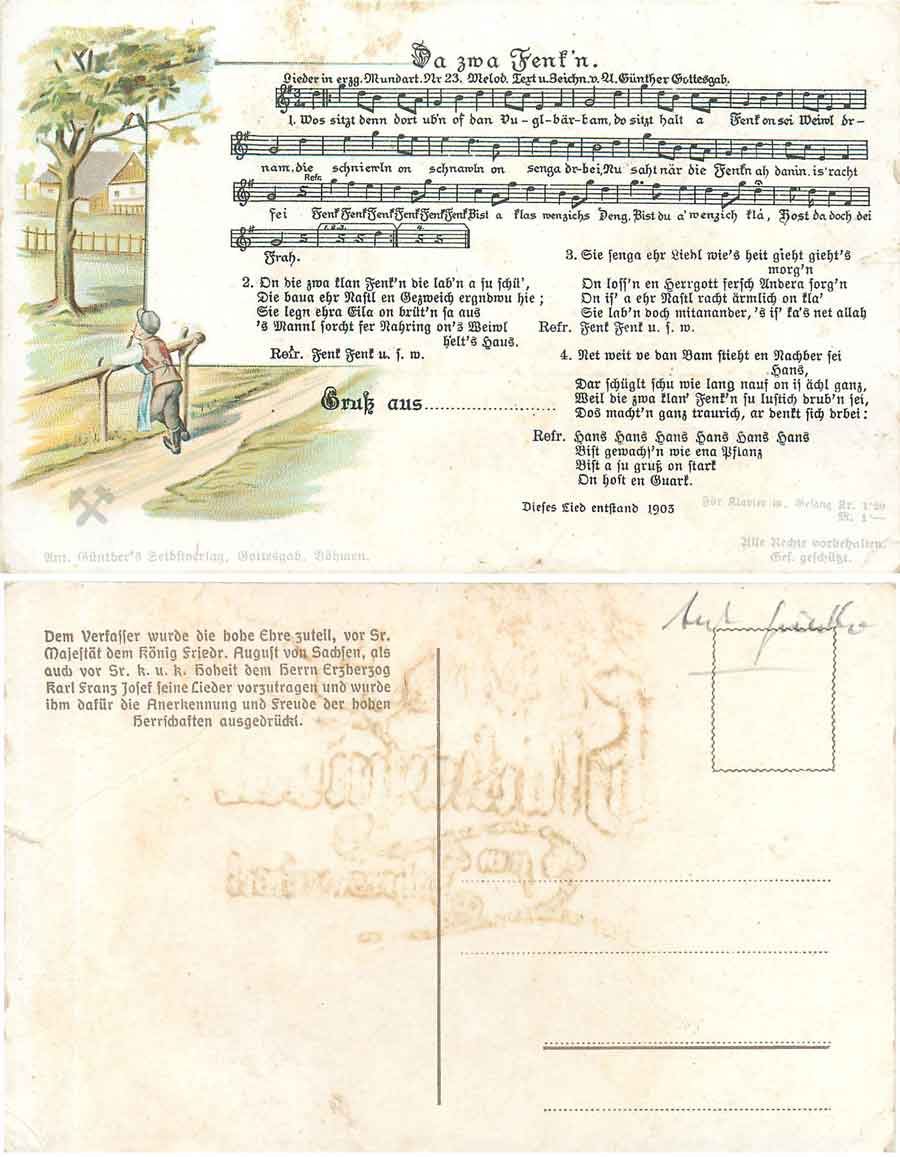 Da zwa Fenk'n.
Lieder in erzg. Mundart. Nr 23. Melod. Text u. Zeichn. v. A. Günther Gottesgab.
1. Wos sitzt denn dort ub'n of dan Vu-gl-bär-bam, do sitzt halt a Fenk on sei Weiwl dr-
nam, die schniewln on schnawln on senga dr-bei, Nu saht när die Fenkn ah danin. is' racht
Refr.
fei Fenk Fenk Fenk Fenk Fenk Fenk Bist a klas wenzichs Deng, Bist du a' wenzich klá, Host da doch dei
1. 2. 3. 4.
Frah.
2. On die zwa klan Fenk'n die lab'n a su schü',
Die baua ehr Nastl en Gezweich ergndwu hie ;
Sie legn ehra Eila on brüt'n sa aus
's Mannl sorcht fer Nahring on's Weiwl
helt's Haus.
Refr. Fenk Fenk u. s. w.
3. Sie senga ehr Liedl wie's heit gieht gieht's
morg'n
On loss'n en Herrgott fersch Andera sorg'n
On is' a ehr Nastl racht ärmlich on kla'
Sie lab'n doch mitanander, 's is' ka's net allah
Refr. Fenk Fenk u. s. w.
4. Net weit ve dan Bam stieht en Nachber sei
Hans,
Dar schüglt schu wie lang nauf on is ächl ganz,
Weil die zwa klan' Fenk'n su lustich drub'n sei,
Dos macht'n ganz traurich, ar denkt sich drbei:
Refr. Hans Hans Hans Hans Hans Hans
Bist gewachs'n wie ena Pflanz
Bist a su gruß on stark
On host en Quark.
Gruß aus
Dieses Lied entstand 1903
Für Klavier u. Gesang Kr. 1·20
M. 1·—
Alle Rechte vorbehalten.
Ges. geschützt.
Ant. Günther's Selbstverlag, Gottesgab, Böhmen.
Dem Verfasser wurde die hohe Ehre zuteil, vor Sr.
Majestät dem König Friedr. August von Sachsen, als
auch vor Sr. k. u. k. Hoheit dem Herrn Erzherzog
Karl Franz Josef seine Lieder vorzutragen und wurde
ihm dafür die Anerkennung und Freude der hohen
Herrschaften ausgedrückt.